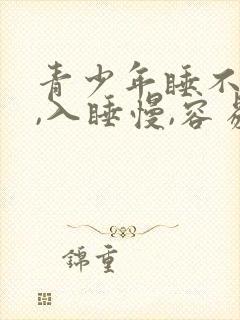 青少年睡不
,入睡慢,容易
錦重